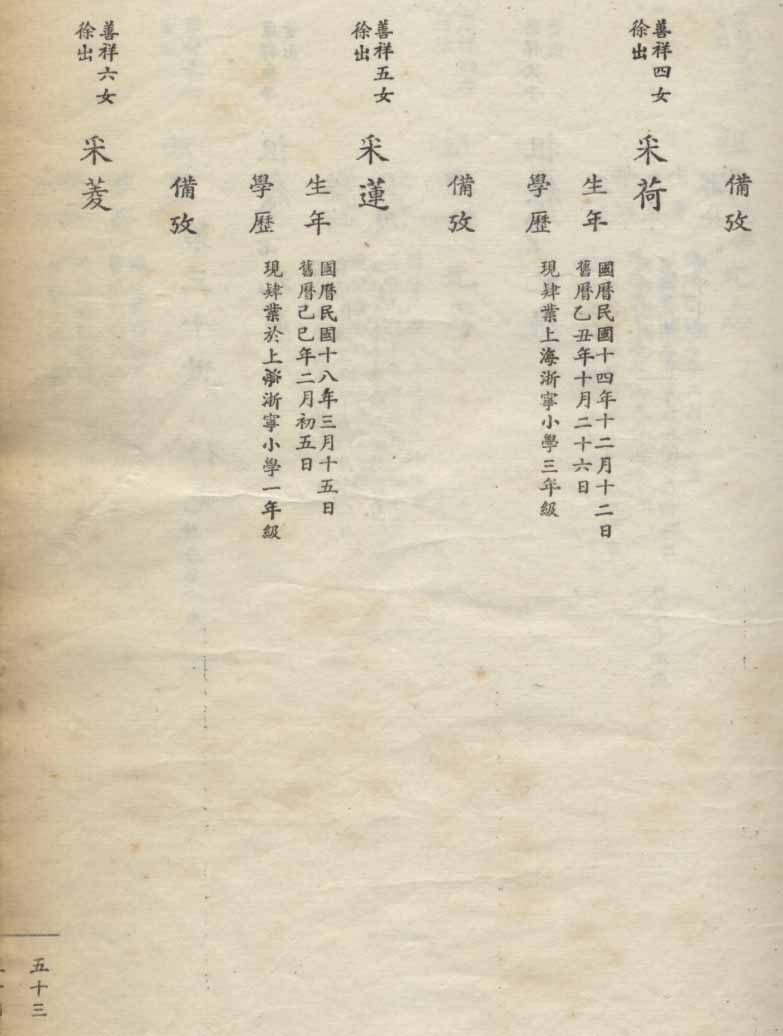 備攷
善祥四女
徐出
采荷
生年
國曆民國十四年十二月十二日
舊曆乙丑年十月二十六日
學歷
現肄業上海浙寧小學三年級
備攷
善祥五女
徐出
采蓮
生年
國曆民國十八年三月十五日
舊曆己巳年二月初五日
學歷
現肄業於上海浙寧小學一年級
備攷
善祥六女
徐出
采菱
五十三